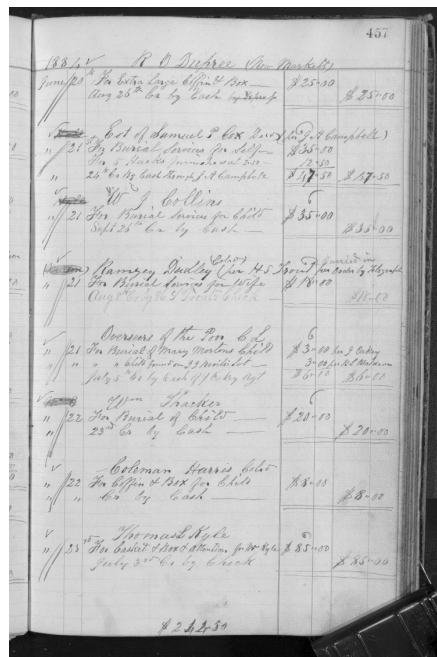 457
1884 R D Dupree
June 20th For Extra Large Coffin & Box $25-00
Aug 25th Cr by Cash $25-00
Est of Samuel P Cox Decd J A Campbell)
" 21 For Burial Services for Self $35-00
For 5 Hacks furnished at 2.50 12-50
24th Cr By Cash through J A Campbell $47-50 $47-50
W J Collins
" 21 For Burial Services for Child $35-00
Sept 25th Cr by Cash $35-00
Ramzey Dudley Cold (per H S
" 21 For Burial Services for Wife $18-00
$18-00
Overseers of the Poor C L
" 21 For Burial of Mary Mortons Child $3-00
" " " Child found on 3-00
July 5th By Cash of $6-00 $6-00
Wm Thacker
" 22 For Burial of Child $20-00
" 23rd Cr by Cash $20-00
Coleman Harris Cold
" 22 For Coffin & Box for Child $8-00
" " Cr by Cash $8-00
Thomas L Kyle
" 23rd For Casket & Box & Attention for Mr Kyle $85-00
July 3rd Cr by Check $85-00
$242.50